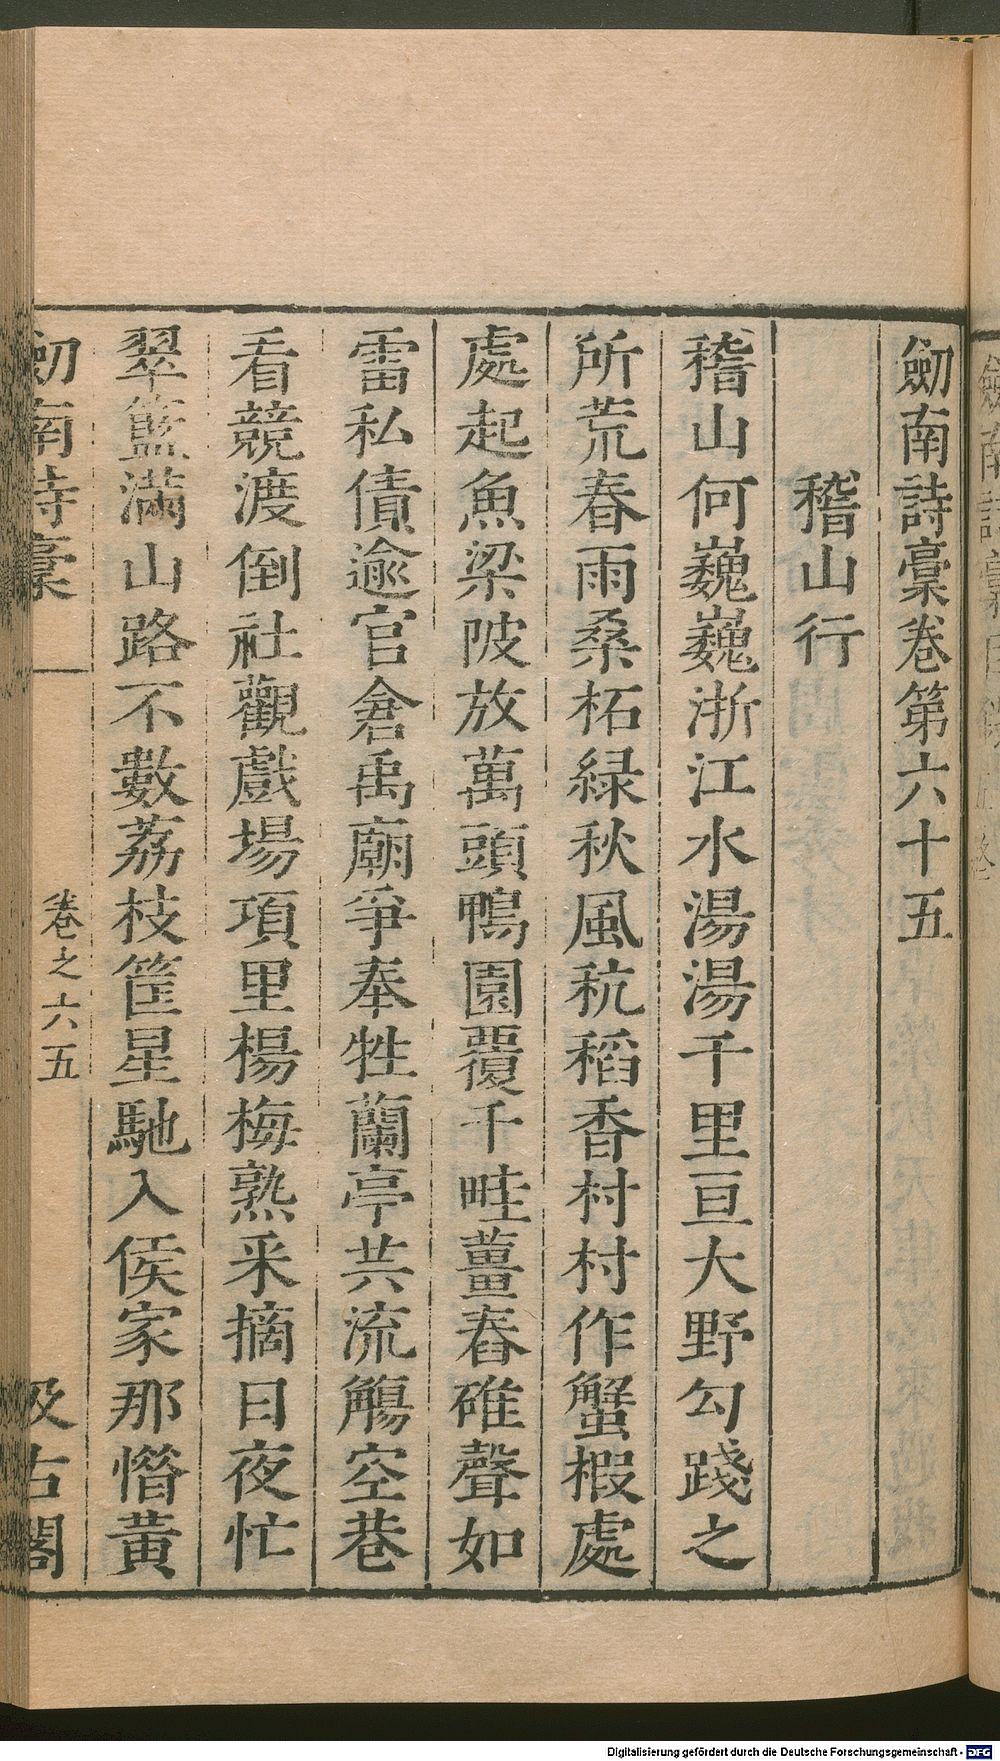 劒南詩稾卷第六十五
稽山行
稽山何巍巍浙江水湯湯千里亘大野勾踐之
所荒春雨桑柘綠秋風秔稻香村村作蟹椵處
處起魚梁陂放萬頭鴨園覆千畦薑舂碓聲如
雷私債逾官倉禹廟爭奉牲蘭亭共流觴空巷
看競渡倒社觀戲場項里楊梅熟采摘日夜忙
翠籃滿山路不數荔枝筐星馳入侯家那惜黃
劒南詩稾 卷之六五 汲古閣
Digitalisierung gefördert durch die Deutsche Forschungsgemeinschaft - DFG